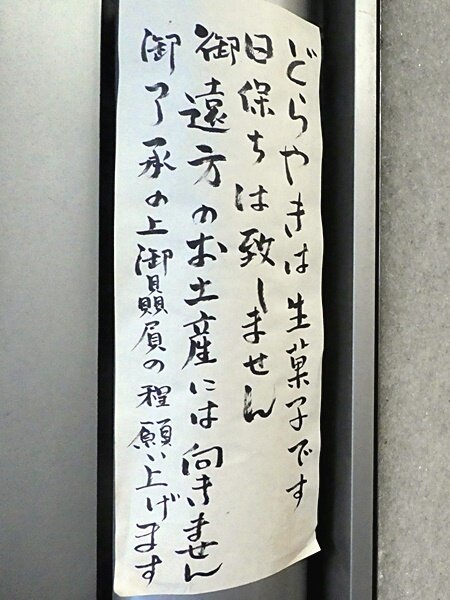 どらやきは生菓子です
日保ちは致しません
御遠方のお土産には向きません
御了承の上御贔屓の程願い上げます